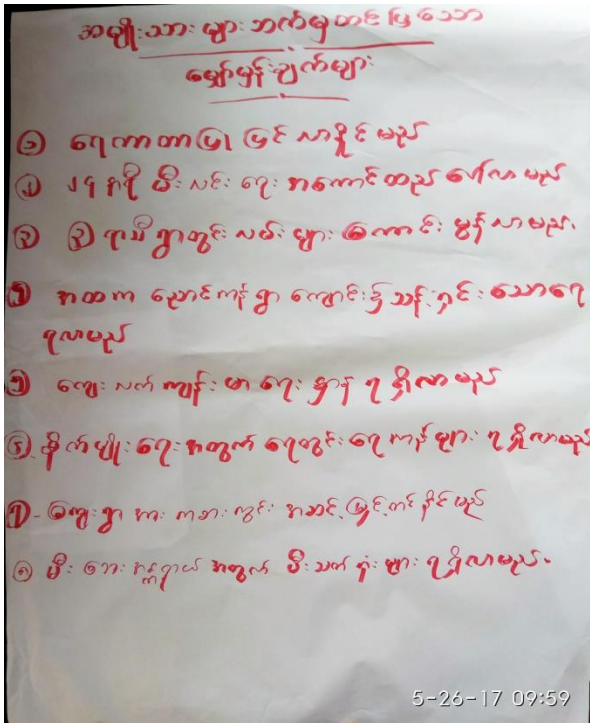 အမျိုးသားများဘက်မှတင်ပြသော
မျှော်မှန်းချက်များ
၁ ရေကာတာပြုပြင်လာနိုင်မည်
၂ ၂၄ နာရီ မီးလင်းရေး အကောင်ထည်ပေါ်လာမည်
၃ ၃ ရာသီ ရွာတွင်းလမ်းများ ကောင်းမွန်လာမည်.
၄ အထက ညောင်ကန်ရွာ ကျောင်း၌ သန့်ရှင်းသောရေ
ရလာမည်
၅ ကျေးလက်ကျန်းမာရေးဌာန ရရှိလာမည်
၆. စိုက်ပျိုးရေးအတွက် ရေတွင်းရေကန်များ ရရှိလာမည်
၇ - ကျေးရွာ အားကစားကွင်း အဆင့်မြှင့်တင်နိုင်မည်
၈ မီးဘေးအန္တရာယ်အတွက် မီးသတ်ရုံးများ ရရှိလာမည်.
5-26-17 09:59